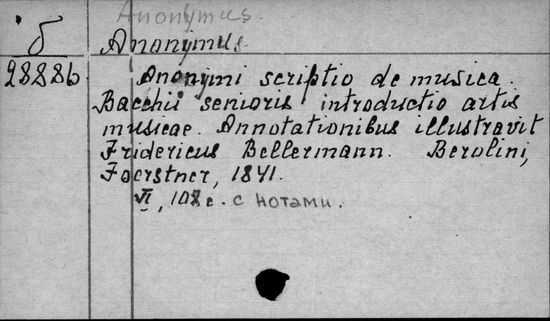 Anonymus.
б Anonymus
28886 Anonymi scriptio de musica.
Bacchii senioris introductio artis
musicae. Annotationibus illustravit
Fridericus Bellermann. Berolini,
Foerstner, 1841.
VI, 108 с. с нотами.